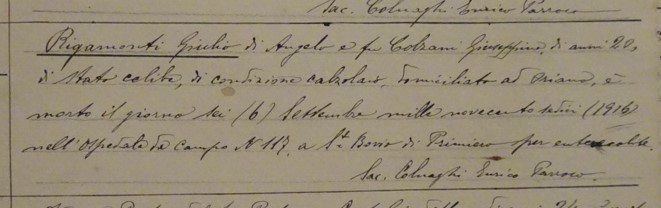 Sac. Colnaghi Enrico Parroco
Rigamonti Giulio di Angelo e fu Colzani Giuseppina, di anni 20,
di stato celibe, di condizione calzolaio, domiciliato ad Oriano, è
morto il giorno sei (6) Settembre mille novecento sedici (1916)
nell'Ospedale da campo N 117, a S. Bovio di Primiero per enterocolite.
Sac. Colnaghi Enrico Parroco.